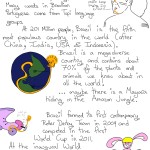 Many words in Brazilian
Portuguese come from tupi language
groups.
At 201 million people, Brazil is the fifth
most populous country in the world (after
China, India, USA & Indonesia)
Brazil is a megadiverse
country and contains about
70% of the plants and
animals we know about in
all the world!
... maybe there is a Mapinguari
hiding in the Amazon Jungle?
Brazil formed its first
Roller Derby Team in 2009 and
competed in the first
World Cup in 2011.
At the inaugural World